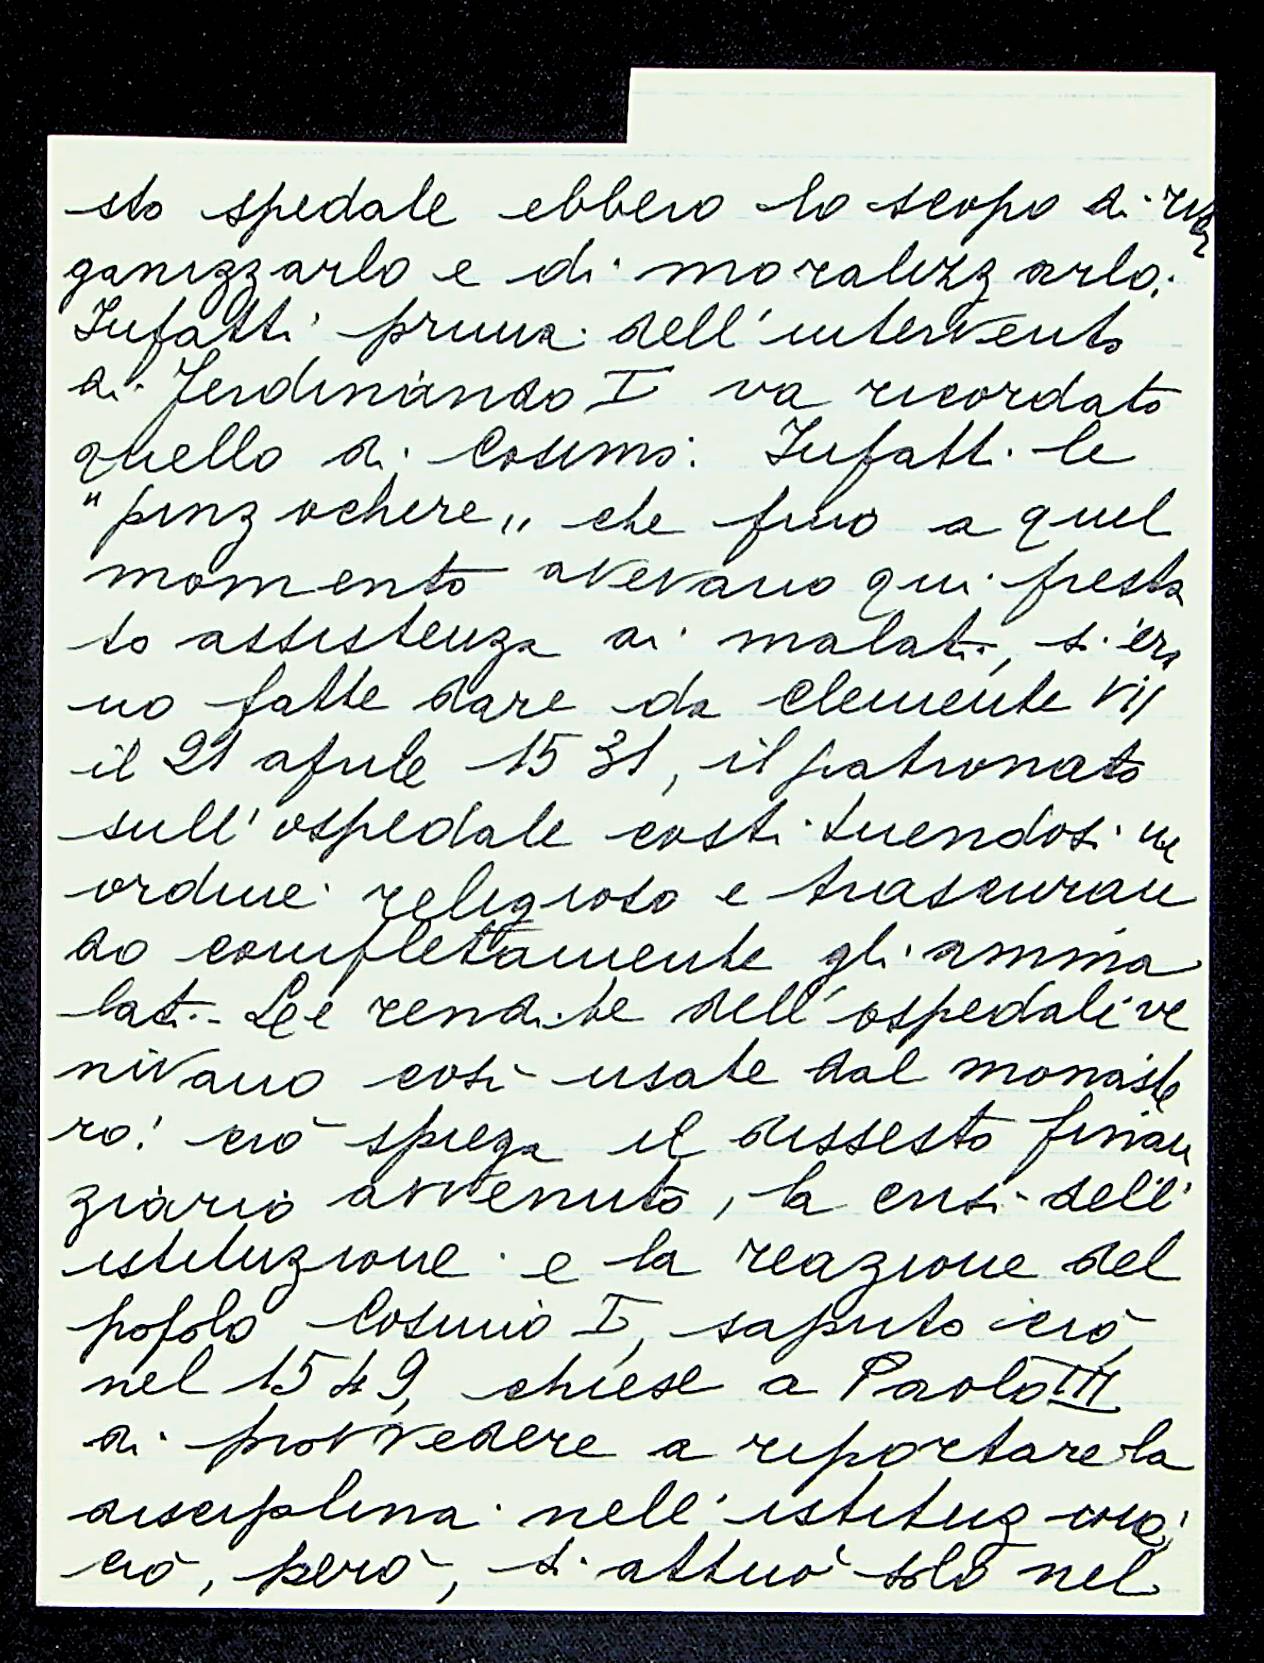 sto spedale ebbero lo scopo di rior
ganizzarlo e di moralizzarlo.
Infatti prima dell'intervento
di Ferdinando I va ricordato
quello di Cosimo. Infatti le
"pinzochere„ che fino a quel
momento avevano qui presta
to assistenza ai malati, s'era
no fatte dare da Clemente VII
il 21 aprile 1531, il patronato
sull'ospedale costituendosi in
ordine religioso e trascuran
do completamente gli amma
lati. Le rendite dell'ospedali ve
nivano così usate dal monaste
ro: ciò spiega il dissesto finan
ziario avvenuto, la crisi dell'
istituzione e la reazione del
popolo Cosimo I, saputo ciò
nel 1549, chiese a Paolo III
di provvedere a riportare la
disciplina nell'istituzione;
ciò, però, si attuò solo nel